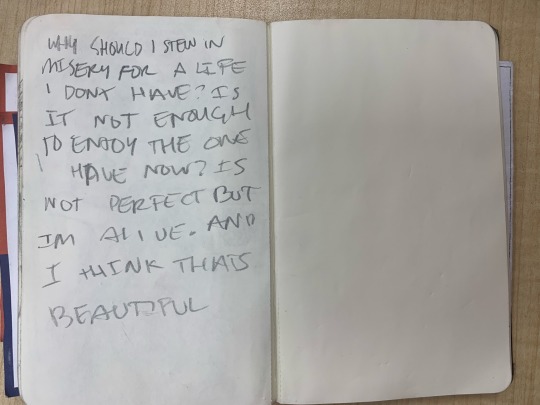 WHY SHOULD I STEW IN
MISERY FOR A LIFE
I DONT HAVE? IS
IT NOT ENOUGH
TO ENJOY THE ONE
I HAVE NOW? IS
NOT PERFECT BUT
IM ALIVE. AND
I THINK THATS
BEAUTIFUL